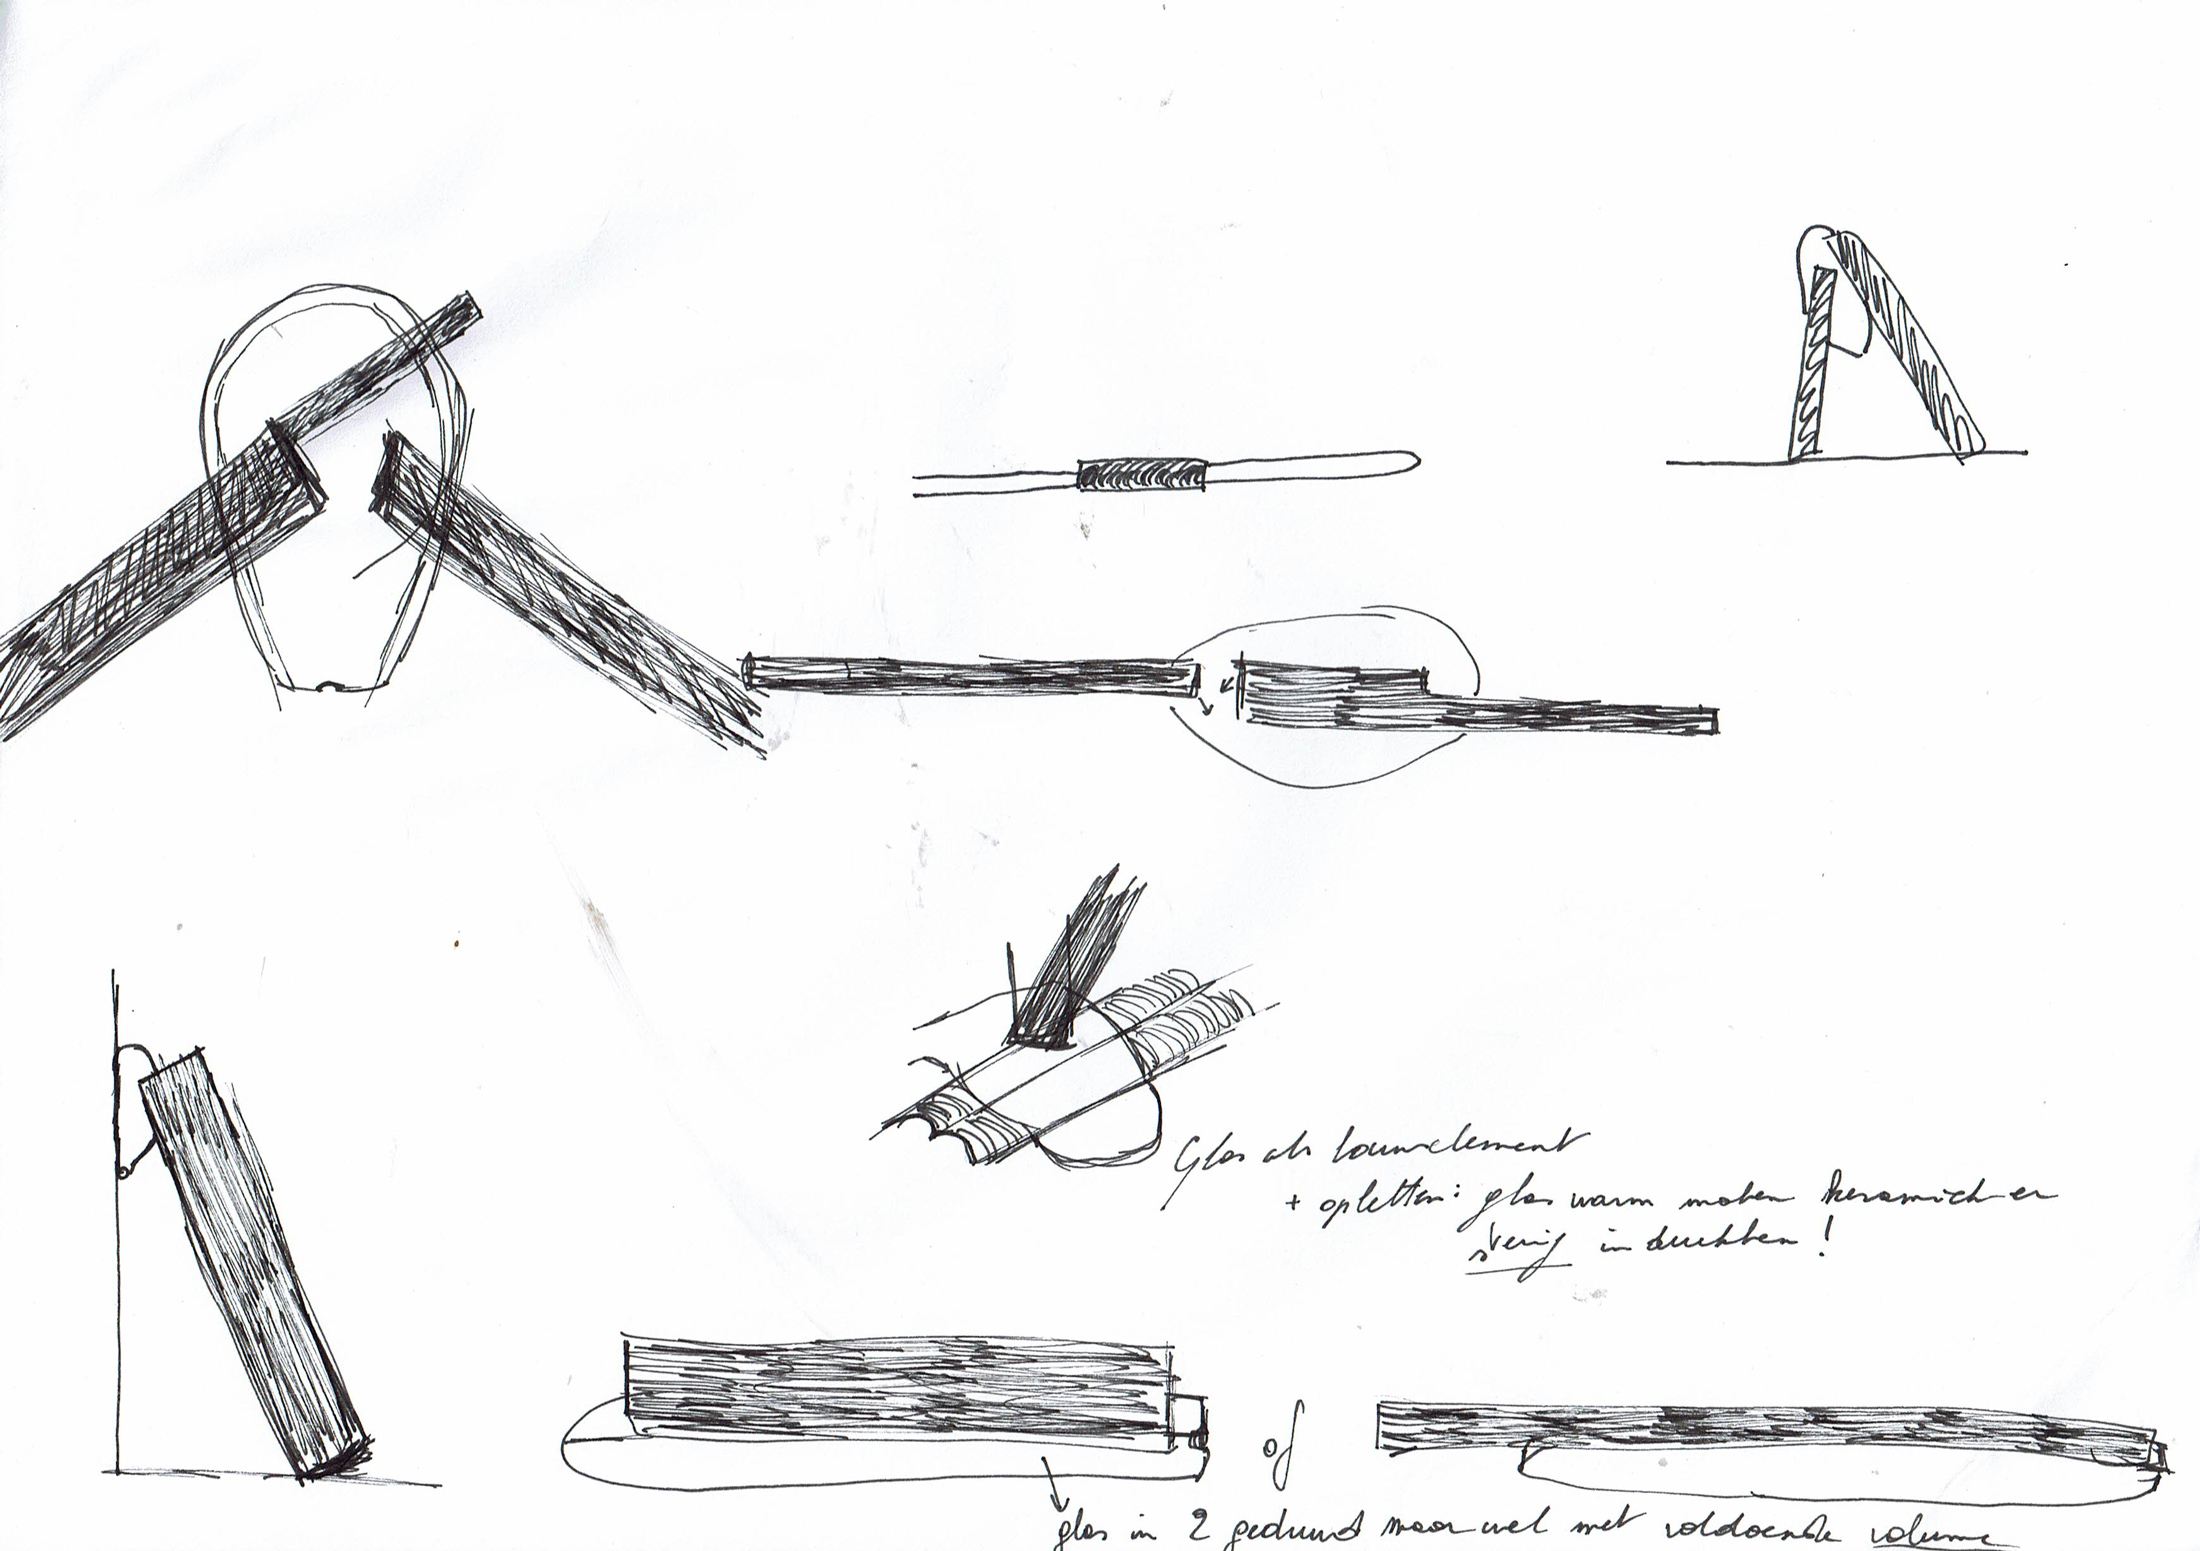 Glas als bouwelement
+ opletten: glas warm maken keramiek er
stevig in drukken!
of
glas in 2 geduwd maar wel met voldoende volume